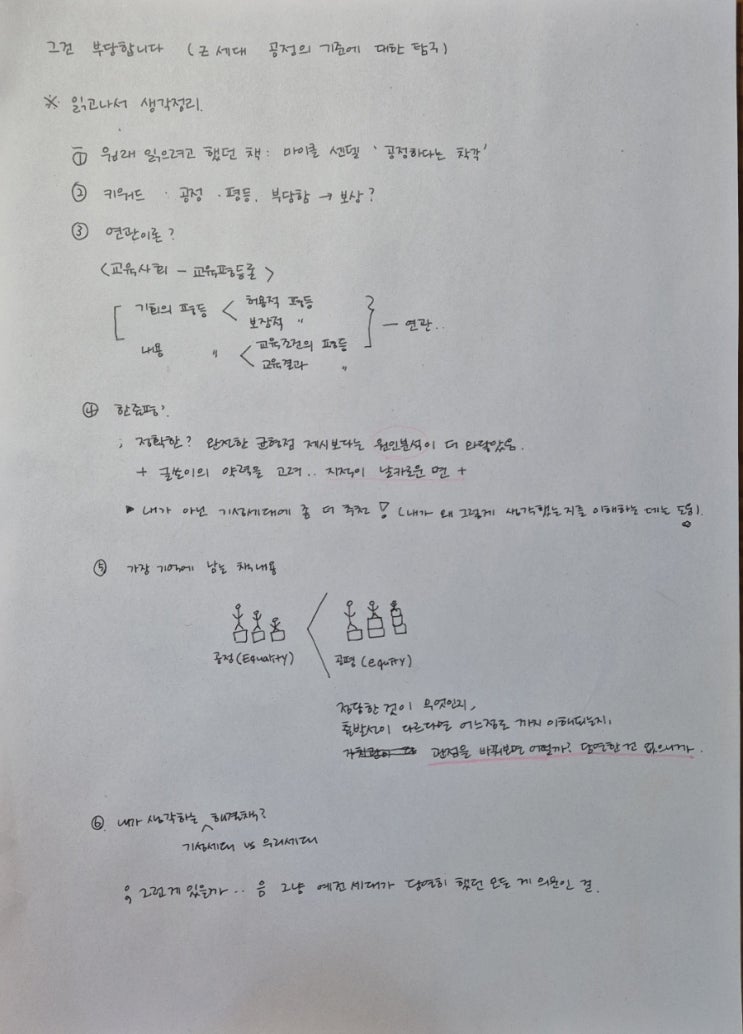 그건 부당합니다 (Z 세대 공정의 기준에 대한 탐구)
※ 읽고나서 생각정리.
① 원래 읽으려고 했던 책: 마이클 샌델 '공정하다는 착각'
② 키워드 : 공정 · 평등, 부당함 → 보상?
③ 연관이론?
<교육사회 - 교육평등론>
기회의 평등 < 허용적 평등
보장적 〃
내용 〃 < 교육조건의 평등
교육결과 〃
— 연관..
④ 한줄평.
; 정확한? 완전한 균형점 제시보다는 원인분석이 더 와닿았음.
+ 글쓴이의 약력을 고려.. 지적이 날카로운 면 +
▶ 내가 아닌 기성세대에 좀 더 추천! (내가 왜 그렇게 생각했는지를 이해하는 데는 도움).
⑤ 가장 기억에 남는 책내용
공정(Equality) < 공평(equity)
정당한 것이 무엇인지,
출발선이 다르다면 어느정도 까지 이해되는지,
관점을 바꿔보면 어떨까? 당연한건 없으니까.
⑥ 내가 생각하는 해결책?
기성세대 vs 우리세대
; 그런게 있을까.. 음 그냥 예전 세대가 당연히 했던 모든 게 의문인 걸.